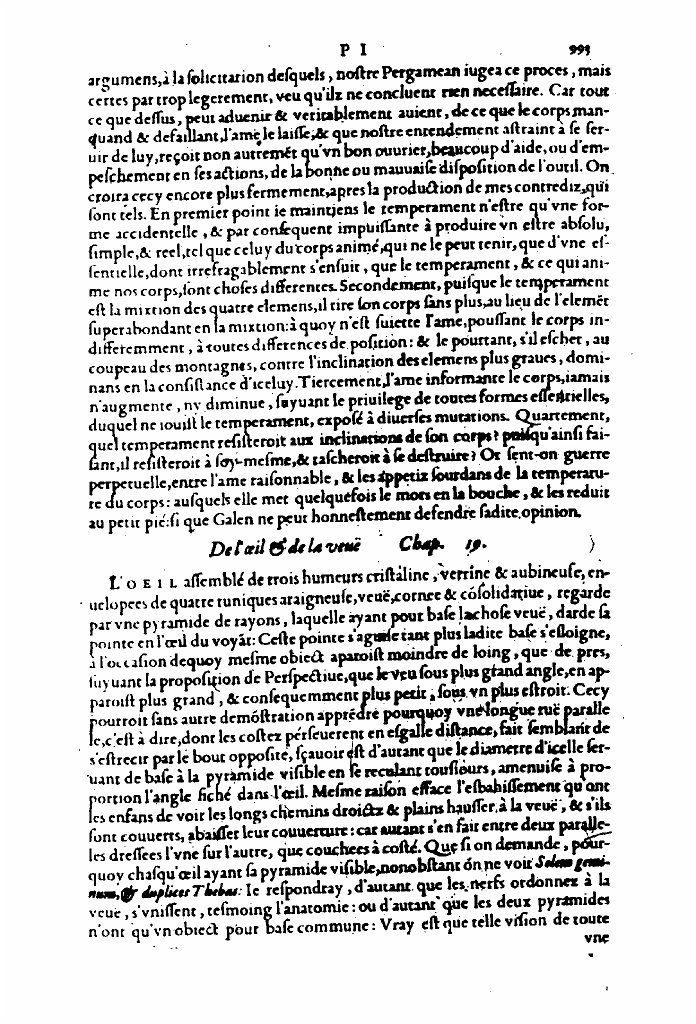 P I 993
argumens,à la solicitation desquels, nostre Pergamean iugea ce proces, mais
certes par trop legerement, veu qu'ilz ne concluent rien necessaire. Car tout
ce que dessus, peut aduenir & veritablement auient, de ce que le corps man-
quand & defaillant,l'ame le laisse,& que nostre entendement astraint à se ser-
uir de luy,reçoit non autremẽt qu'vn bon ouurier,beaucoup d'aide, ou d'em-
peschement en ses actions, de la bonne ou mauuaise disposition de l'outil. On
croira cecy encore plus fermement,apres la production de mes contrediz,qui
sont tels. En premier point ie maintiens le temperament n'estre qu'vne for-
me accidentelle , & par consequent impuissante à produire vn estre absolu,
simple,& reel,tel que celuy du corps animé,qui ne le peut tenir,que d'vne es-
sentielle,dont irrefragablement s'ensuit , que le temperament , & ce qui ani-
me nos corps,sont choses differentes. Secondement, puisque le temperament
est la mixtion des quatre elemens,il tire son corps sans plus,au lieu de l'elemẽt
superabondant en la mixtion:à quoy n'est suiette l'ame,poussant le corps in-
differemment , à toutes differences de position: & le pourtant, s'il eschet , au
coupeau des montagnes, contre l'inclination des elemens plus graues, domi-
nans en la consistance d'iceluy. Tiercement,l'ame informante le corps,iamais
n'augmente , ny diminue , suyuant le priuilege de toutes formes essentielles,
duquel ne iouist le temperament, exposé à diuerses mutations. Quartement,
quel temperament resisteroit aux inclinations de son corps? puisqu'ainsi fai-
sant,il resisteroit à soy-mesme,& tascheroit à se destruire? Or sent-on guerre
perpetuelle,entre l'ame raisonnable, & les appetiz sourdans de la temperatu-
re du corps: ausquels elle met quelquefois le mors en la bouche , & les reduit
au petit pié:si que Galen ne peut honnestement defendre sadite opinion.
De l'œil & de la veuë Chap. 19.
L'OEIL assemblé de trois humeurs cristaline , verrine & aubineuse, en-
uelopees de quatre tuniques araigneuse,veuë,cornee & cõsolidatiue , regarde
par vne pyramide de rayons, laquelle ayant pour base la chose veuë, darde sa
pointe en l'œil du voyãt: Ceste pointe s'aguise tant plus ladite base s'esloigne,
à l'occasion dequoy mesme obiect aparoist moindre de loing , que de pres,
suyuant la proposition de Perspectiue,que le veu sous plus grand angle,en ap-
paroist plus grand , & consequemment plus petit , sous vn plus estroit. Cecy
pourroit sans autre demõstration apprẽdre pourquoy vne longue ruë paralle
le,c'est à dire,dont les costez perseuerent en esgalle distance, fait semblant de
s'estrecir par le bout opposite, sçauoir est d'autant que le diametre d'icelle ser-
uant de base à la pyramide visible en se reculant tousiours, amenuise à pro-
portion l'angle fiché dans l'œil. Mesme raison efface l'esbahissement qu'ont
les enfans de voir les longs chemins droictz & plains hausser,à la veuë , & s'ils
sont couuerts, abaisser leur couuerture : car autant s'en fait entre deux paralle-
les dressees l'vne sur l'autre, que couchees à costé. Que si on demande , pour-
quoy chasqu'œil ayant sa pyramide visible,nonobstant on ne voit Solem gemi-
num, & duplices Thebas: Ie respondray , d'autant que les nerfs ordonnez à la
veuë , s'vnissent , tesmoing l'anatomie : ou d'autant que les deux pyramides
n'ont qu'vn obiect pour base commune : Vray est que telle vision de toute
vne